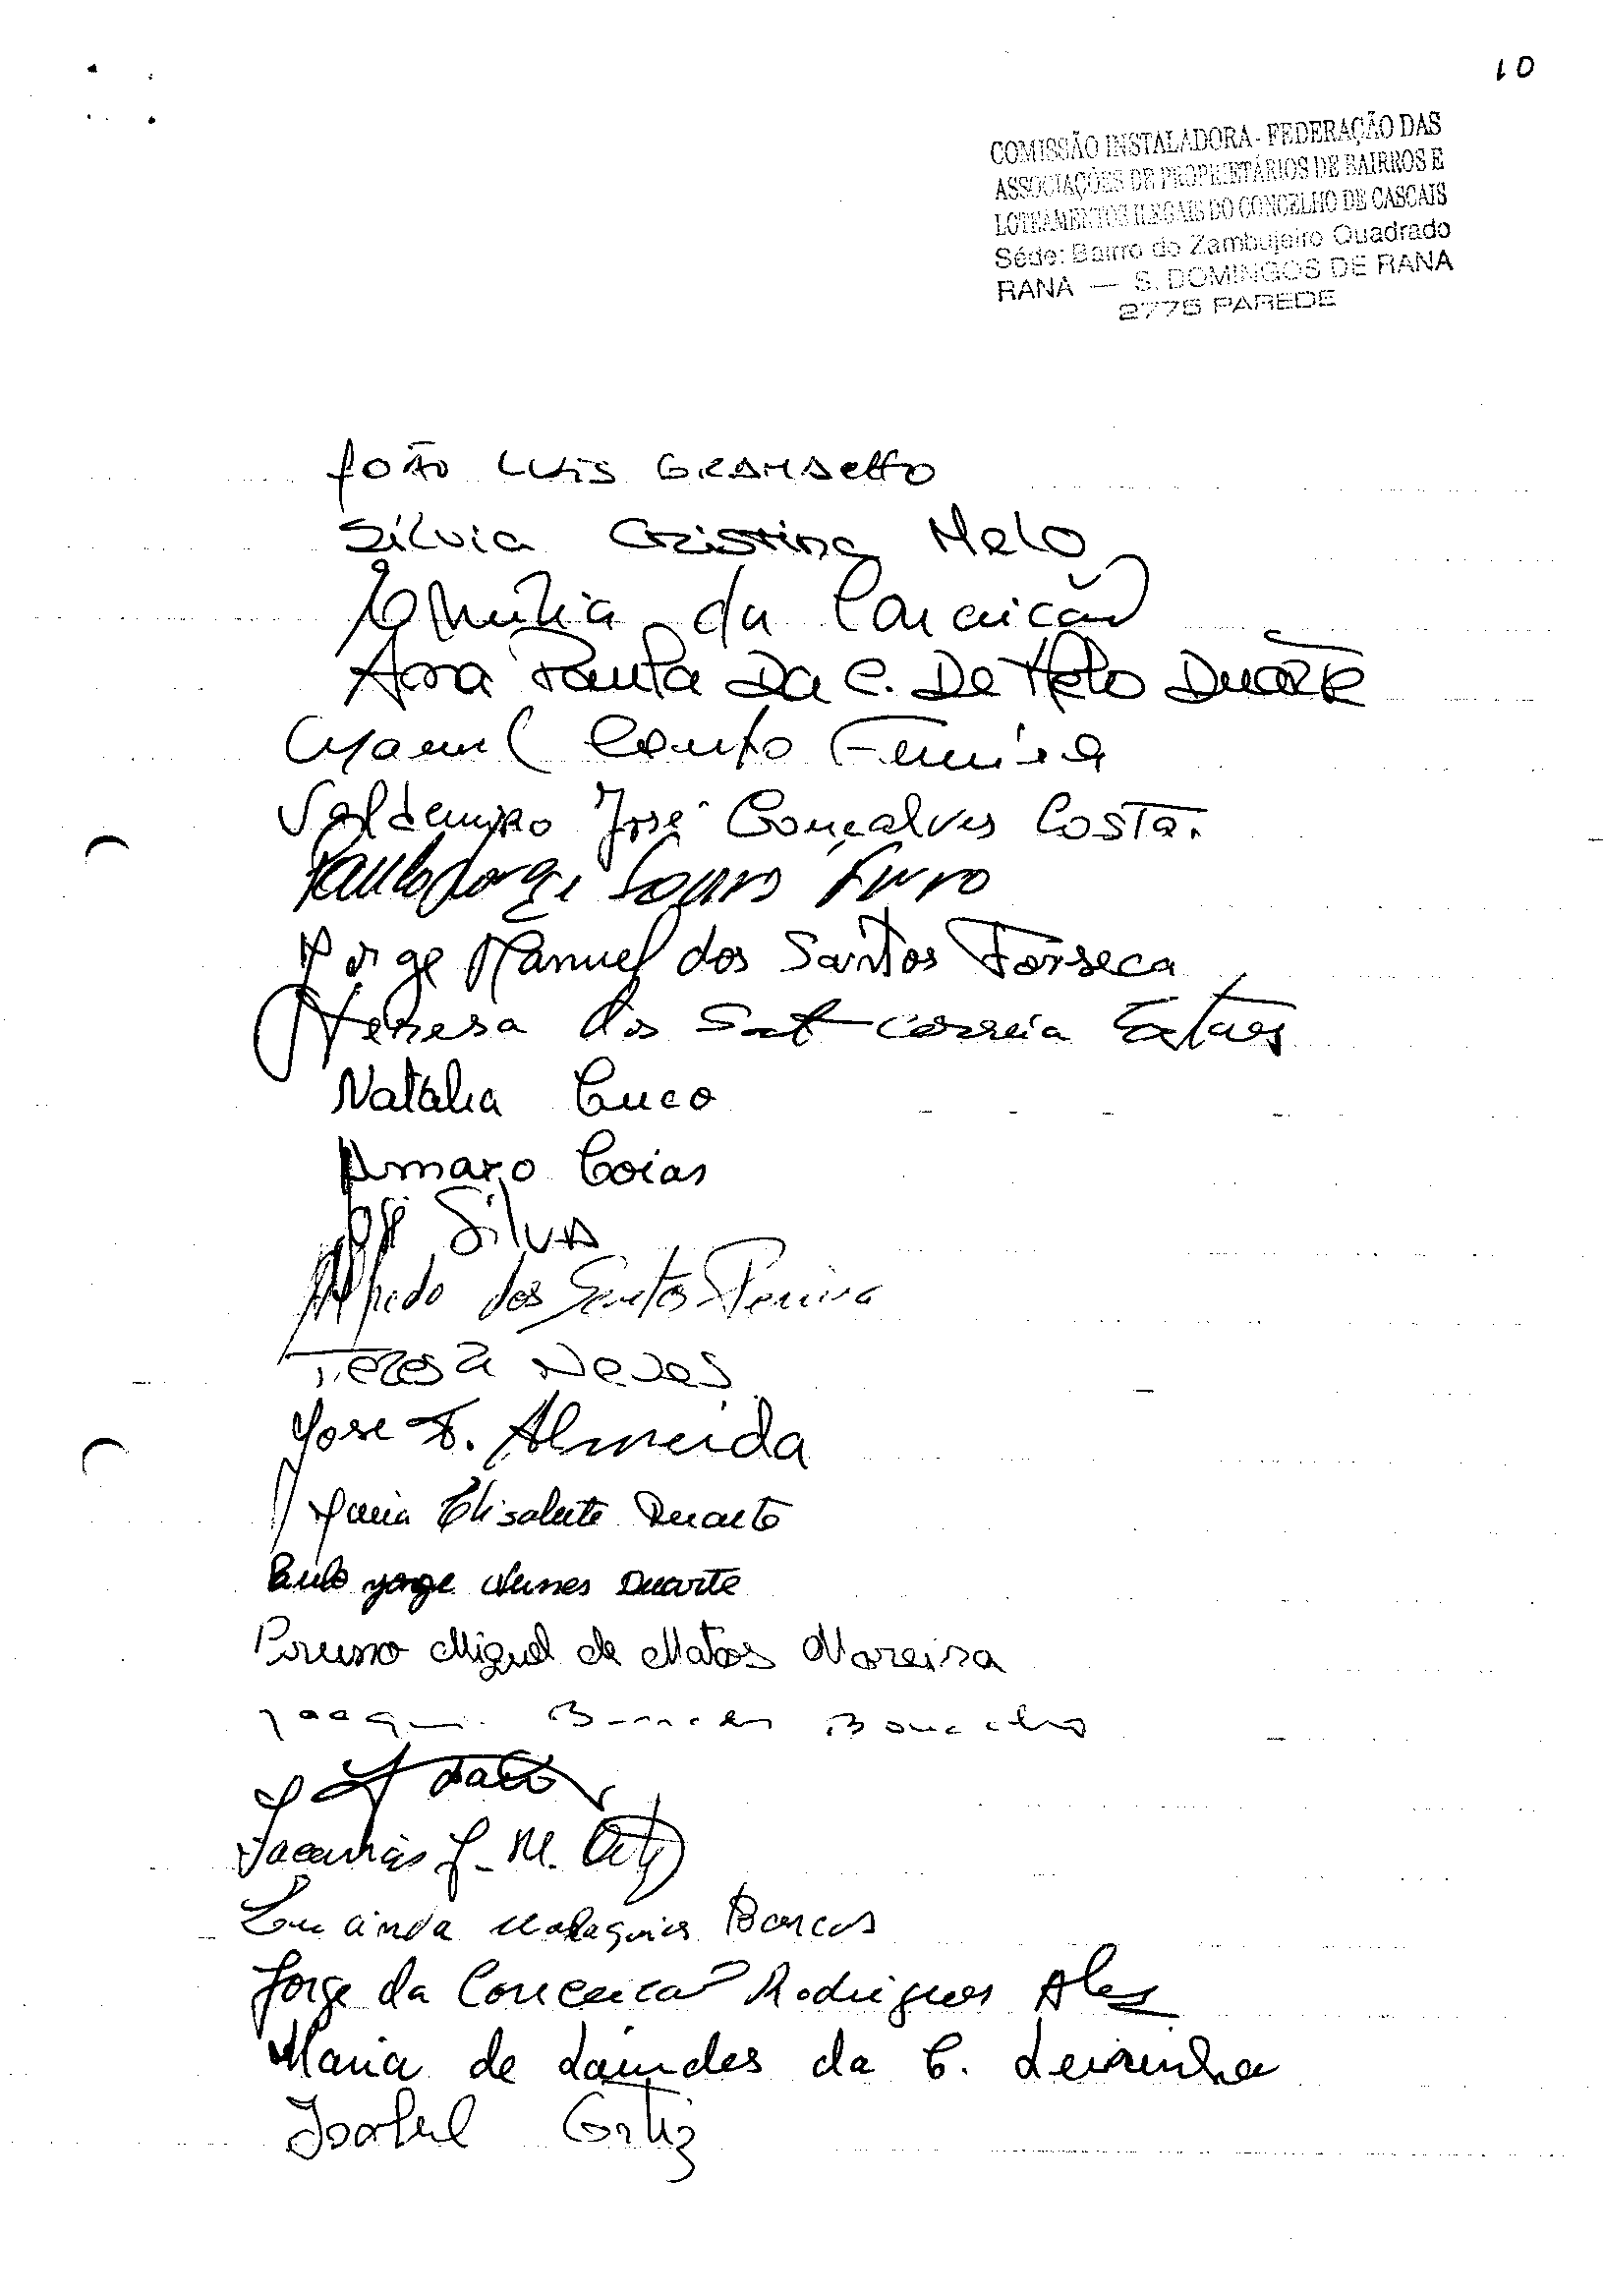 10
COMISSÃO INSTALADORA - FEDERAÇÃO DAS
ASSOCIAÇÕES DE PROPRIETÁRIOS DE BAIRROS E
LOTEAMENTOS ILEGAIS DO CONCELHO DE CASCAIS
Séde: Bairro do Zambujeiro Quadrado
RANA — S. DOMINGOS DE RANA
2775 PAREDE
João Luis
Sílvia Cristina Melo
da Conceição
Ana Paula Da C. De Melo Duarte
Couto Ferreira
Valdemiro José Gonçalves Costa.
Paulo Jorge
Jorge Manuel dos Santos Fonseca
Teresa dos Correia
Natália Cuco
Amaro Coias
José Silva
Alfredo dos Santos Pereira
Teresa Neves
Jose F. Almeida
Maria Elisabete Duarte
Paulo Jorge Nunes Duarte
Bruno Miguel de Matos Moreira
J. M.
Lucinda Malaquias Barcos
Jorge da Conceicao Rodrigues Alves
Maria de Lourdes da C. Leirinha
Isabel Ortiz